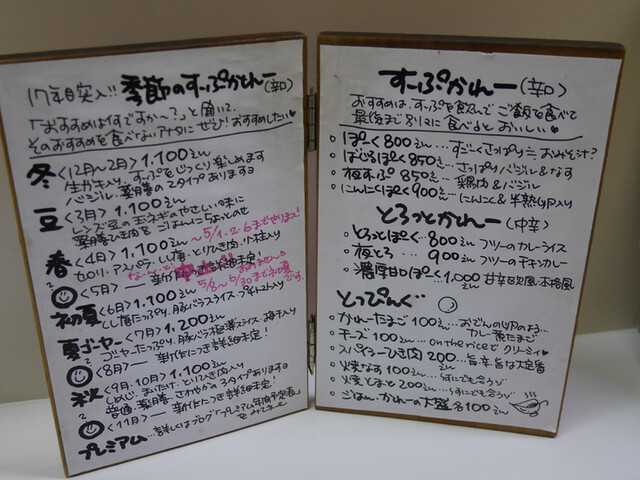 17年目突入!! 季節のすーぷかれー(辛口)
「おすすめは何ですか〜?」と聞いて、
そのおすすめを食べないアナタにぜひ!おすすめしたい♥
冬 <12月〜2月> 1.100えん
生かき入り、すーぷをじっくり楽しめます
バジル、薬膳の2タイプあります
豆 <3月> 1.100えん
レンズ豆の玉ネギのやさしい味に
薬膳ひき肉をごはんにちょっとのせ
春 <4月> 1.100えん 〜5/1.2.6まで
セロリ、アスパラ、しいたけ、とりひき肉、小柱入り
<5月>
5/8〜6/30まで初夏です。
初夏 <6月> 1.100えん
夏ゴーヤー <7月> 1.200えん
ゴーヤーたっぷり、豚バラ極薄スライス、梅干入り
<8月>― 新作につき詳細未定!
秋 <9月・10月> 1.100えん
しめじ、まいたけ、とりひき肉入り
普通・薬膳・さわやかの3タイプあります
<11月>― 新作につき詳細未定!
プレミアム…詳しくはブログ「プレミアム年間予定表」をみてネ
すーぷかれー(辛口)
おすすめは、すーぷを飲んで ご飯を食べて
最後まで別々に食べるとおいしい♥
ぽーく 800えん…すごくさっぱり=おみそ汁?
ばじるぽーく 850えん…さっぱりバジル&なす
夜すーぷ 850えん…鶏肉&バジル
にんにくぽーく 900えん…にんにく&半熟卵入り
とろっとかれー(中辛)
とろっとぽーく…800えん フツーのカレーライス
夜とろ…900えん フツーのチキンカレー
濃厚甘口ぽーく…1.000えん 甘辛欧風・本格風
とっぴんぐ
かれーたまご 100えん…おでんの卵のよう…カレー煮たまご
チーズ 100えん…on the riceでクリーミィ♥
スパイシーひき肉 200えん…旨辛旨な大定番
焼なす 100えん…
焼とまと 200えん…
ごはん・かれーの大盛 各100えん